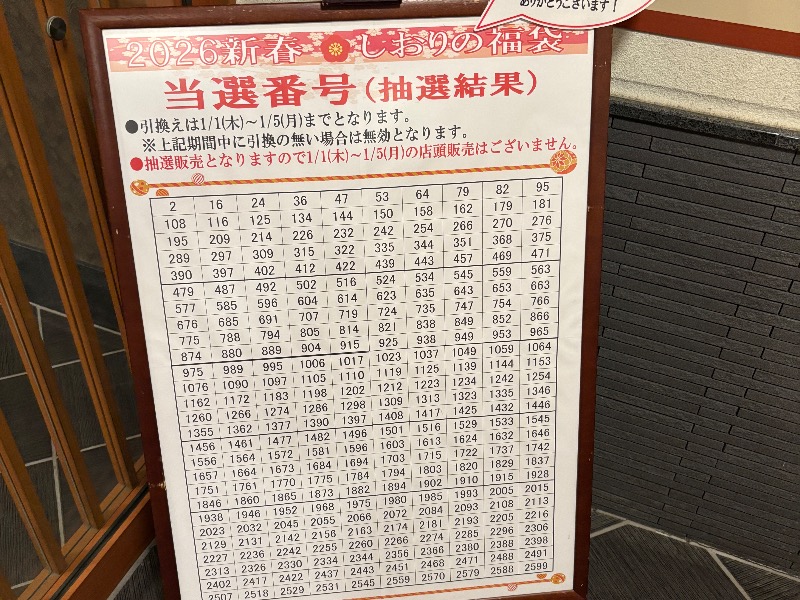 ありがとうございます！
2026新春 しおりの福袋
当選番号(抽選結果)
●引換えは1/1(木)～1/5(月)までとなります。
※上記期間中に引換の無い場合は無効となります。
●抽選販売となりますので1/1(木)～1/5(月)の店頭販売はございません。
2 16 24 36 47 53 64 79 82 95
108 116 125 134 144 150 158 162 179 181
195 209 214 226 232 242 254 266 270 276
289 297 309 315 322 335 344 351 368 375
390 397 402 412 422 439 443 457 469 471
479 487 492 502 516 524 534 545 559 563
577 585 596 604 614 623 635 643 653 663
676 685 691 707 719 724 735 747 754 766
775 788 794 805 814 821 838 849 852 866
874 880 889 904 915 925 938 949 953 965
975 989 995 1006 1017 1023 1037 1049 1059 1064
1076 1090 1097 1105 1110 1119 1125 1139 1144 1153
1162 1172 1183 1198 1202 1212 1223 1234 1242 1254
1260 1266 1274 1286 1298 1309 1313 1323 1335 1346
1355 1362 1377 1390 1397 1408 1417 1425 1432 1446
1456 1461 1477 1482 1496 1501 1516 1529 1533 1545
1556 1564 1572 1581 1596 1603 1613 1624 1632 1646
1657 1664 1673 1684 1694 1703 1715 1722 1737 1742
1751 1761 1770 1775 1784 1794 1803 1820 1829 1837
1846 1860 1865 1873 1882 1894 1902 1910 1915 1928
1938 1946 1952 1968 1975 1980 1985 1993 2005 2015
2023 2032 2045 2055 2066 2072 2084 2093 2108 2113
2129 2131 2142 2156 2163 2174 2181 2193 2205 2216
2227 2236 2242 2255 2260 2266 2274 2285 2296 2306
2313 2326 2330 2334 2344 2356 2366 2380 2388 2398
2402 2417 2422 2437 2443 2451 2468 2471 2488 2491
2507 2518 2529 2531 2545 2559 2570 2579 2588 2599